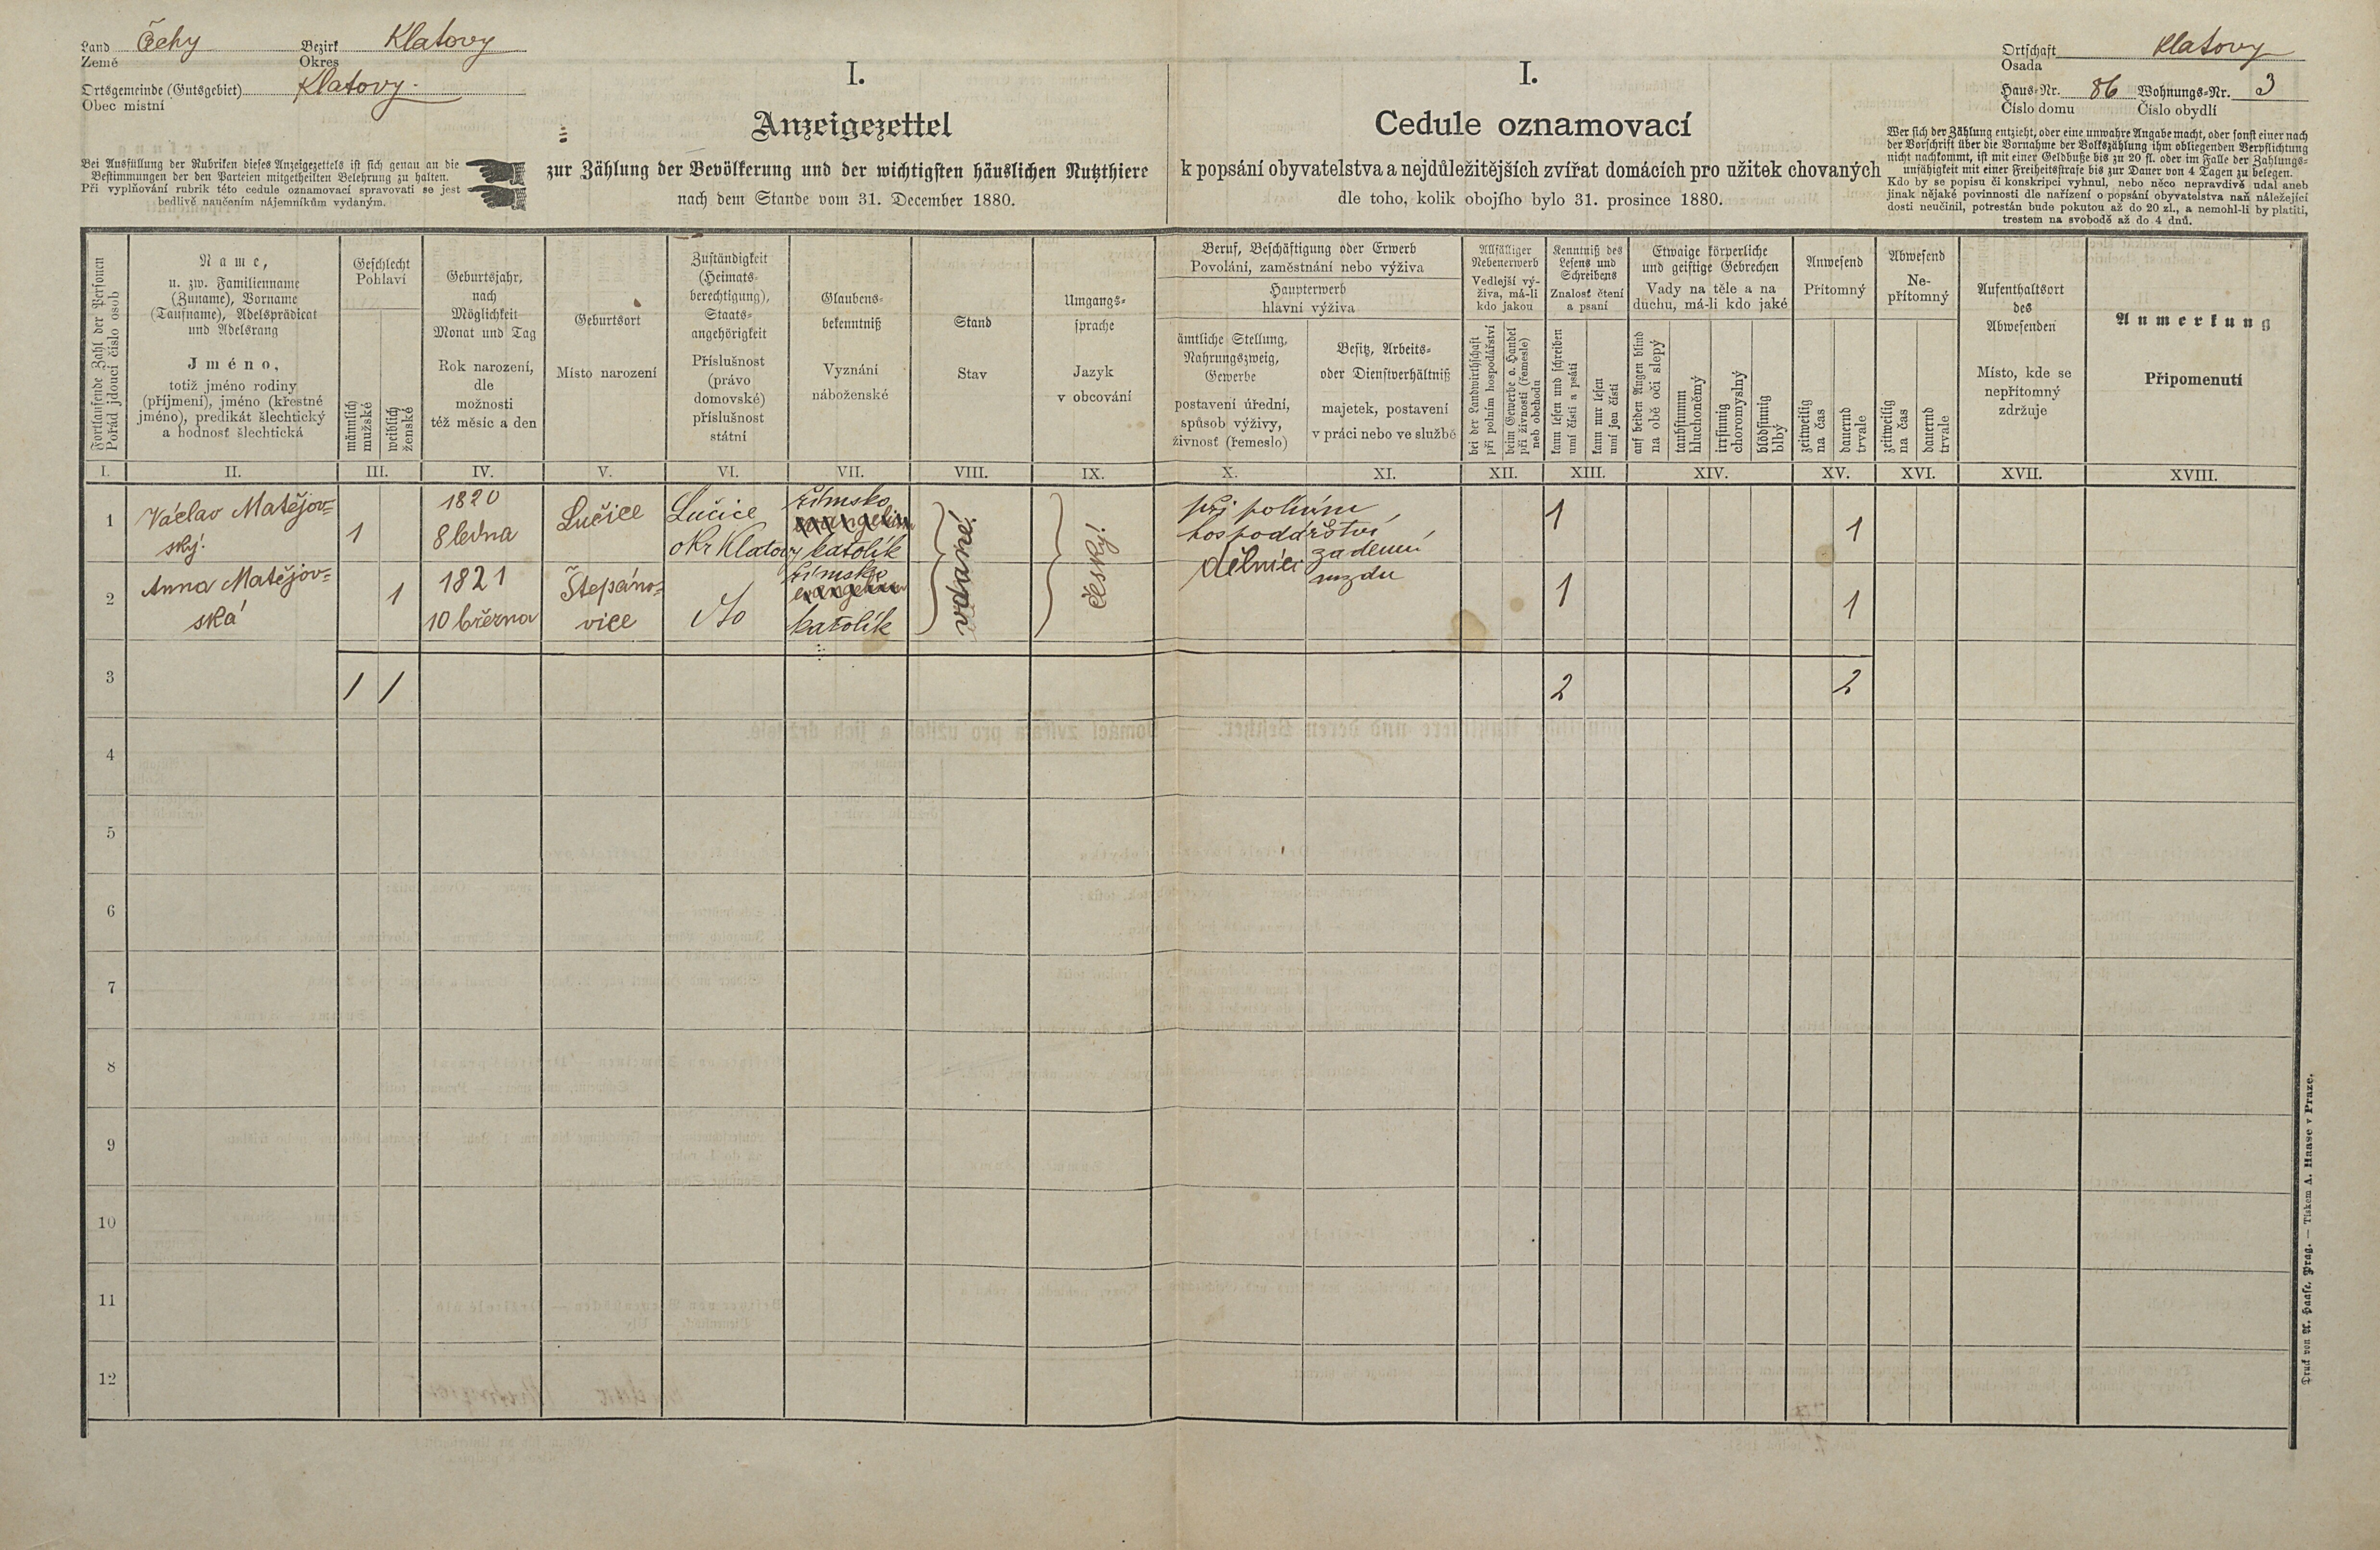 Land Čechy Bezirk Klatovy
Země Okres
Ortsgemeinde (Gutsgebiet) Klatovy.
Obec místní
Bei Ausfüllung der Rubriken dieses Anzeigezettels ist sich genau an die
Bestimmungen der den Parteien mitgetheilten Belehrung zu halten.
Při vyplňování rubrik této cedule oznamovací spravovati se jest
bedlivě naučením nájemníkům vydaným.
I.
Anzeigezettel
zur Zählung der Bevölkerung und der wichtigsten häuslichen Nutzthiere
nach dem Stande vom 31. December 1880.
I.
Cedule oznamovací
k popsání obyvatelstva a nejdůležitějších zvířat domácích pro užitek chovaných
dle toho, kolik obojího bylo 31. prosince 1880.
Ortschaft Klatovy
Osada
Haus-Nr. 86 Wohnungs-Nr. 3
Číslo domu Číslo obydlí
Wer sich der Zählung entzieht, oder eine unwahre Angabe macht, oder sonst einer nach
der Vorschrift über die Vornahme der Volkszählung ihm obliegenden Verpflichtung
nicht nachkommt, ist mit einer Geldbuße bis zu 20 fl. oder im Falle der Zahlungs-
unfähigkeit mit einer Freiheitsstrafe bis zur Dauer von 4 Tagen zu belegen.
Kdo by se popisu či konskripci vyhnul, nebo něco nepravdivě udal aneb
jinak nějaké povinnosti dle nařízení o popsání obyvatelstva naň náležející
dosti neučinil, potrestán bude pokutou až do 20 zl., a nemohl-li by platiti,
trestem na svobodě až do 4 dnů.
Fortlaufende Zahl der Personen
Pořád jdoucí číslo osob
Name,
u. zw. Familienname
(Zuname), Vorname
(Taufname), Adelsprädicat
und Adelsrang
Jméno,
totiž jméno rodiny
(příjmení), jméno (křestné
jméno), predikát šlechtický
a hodnosť šlechtická
Geschlecht
Pohlaví
männlich
mužské
weiblich
ženské
Geburtsjahr,
nach
Möglichkeit
Monat und Tag
Rok narození,
dle
možnosti
též měsíc a den
Geburtsort
Místo narození
Zuständigkeit
(Heimats-
berechtigung),
Staats-
angehörigkeit
Příslušnost
(právo
domovské)
příslušnost
státní
Glaubens-
bekenntniß
Vyznání
náboženské
Stand
Stav
Umgangs-
sprache
Jazyk
v obcování
Beruf, Beschäftigung oder Erwerb
Povolání, zaměstnání nebo výživa
Haupterwerb
hlavní výživa
ämtliche Stellung,
Nahrungszweig,
Gewerbe
postavení úřední,
spůsob výživy,
živnosť (řemeslo)
Besitz, Arbeits-
oder Dienstverhältniß
majetek, postavení
v práci nebo ve službě
Allfälliger
Nebenerwerb
Vedlejší vý-
živa, má-li
kdo jakou
bei der Landwirthschaft
při polním hospodářství
beim Gewerbe o. Handel
při živnosti (řemesle)
neb obchodu
Kenntniß des
Lesens und
Schreibens
Znalosť čtení
a psaní
kann lesen und schreiben
umí čísti a psáti
kann nur lesen
umí jen čísti
Etwaige körperliche
und geistige Gebrechen
Vady na těle a na
duchu, má-li kdo jaké
auf beiden Augen blind
na obě oči slepý
taubstumm
hluchoněmý
irrsinnig
choromyslný
blödsinnig
blbý
Anwesend
Přítomný
zeitweilig
na čas
dauernd
trvale
Abwesend
Ne-
přítomný
zeitweilig
na čas
dauernd
trvale
Aufenthaltsort
des
Abwesenden
Místo, kde se
nepřítomný
zdržuje
Anmerkung
Připomenutí
I. II. III. IV. V. VI. VII. VIII. IX. X. XI. XII. XIII. XIV. XV. XVI. XVII. XVIII.
1 Václav Matějov=
ský. 1 1820
8 ledna Lučice Lučice
okr Klatovy římsko
evangelium
katolík vdané. český! při polním
hospodářství,
dělníci za denní
mzdu 1 1
2 Anna Matějov=
ská 1 1821
10 března Štepáno=
vice římsko
evangelium
katolík 1 1
3 1 1 2 2
4
5
6
7
8
9
10
11
12
Druck von A. Haase, Prag. — Tiskem A. Haase v Praze.